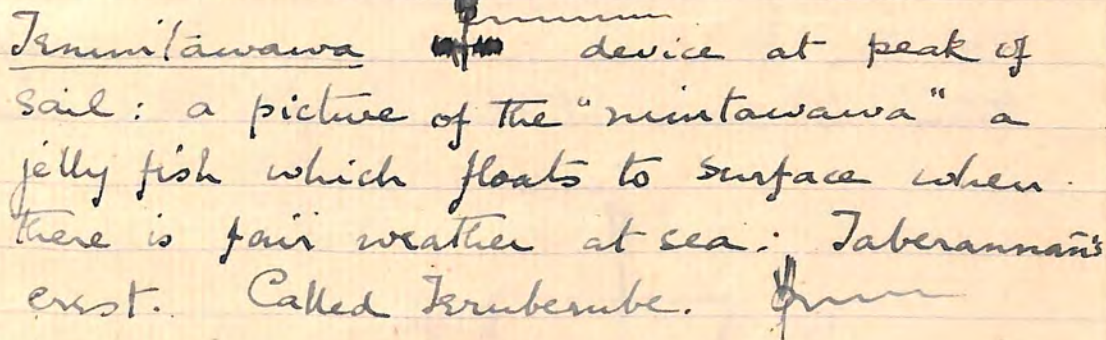 Tenimtawawa device at peak of
sail: a picture of the "nimtawawa" a
jelly fish which floats to surface when
there is fair weather at sea: Taberannan's
crest. Called Teruberube.